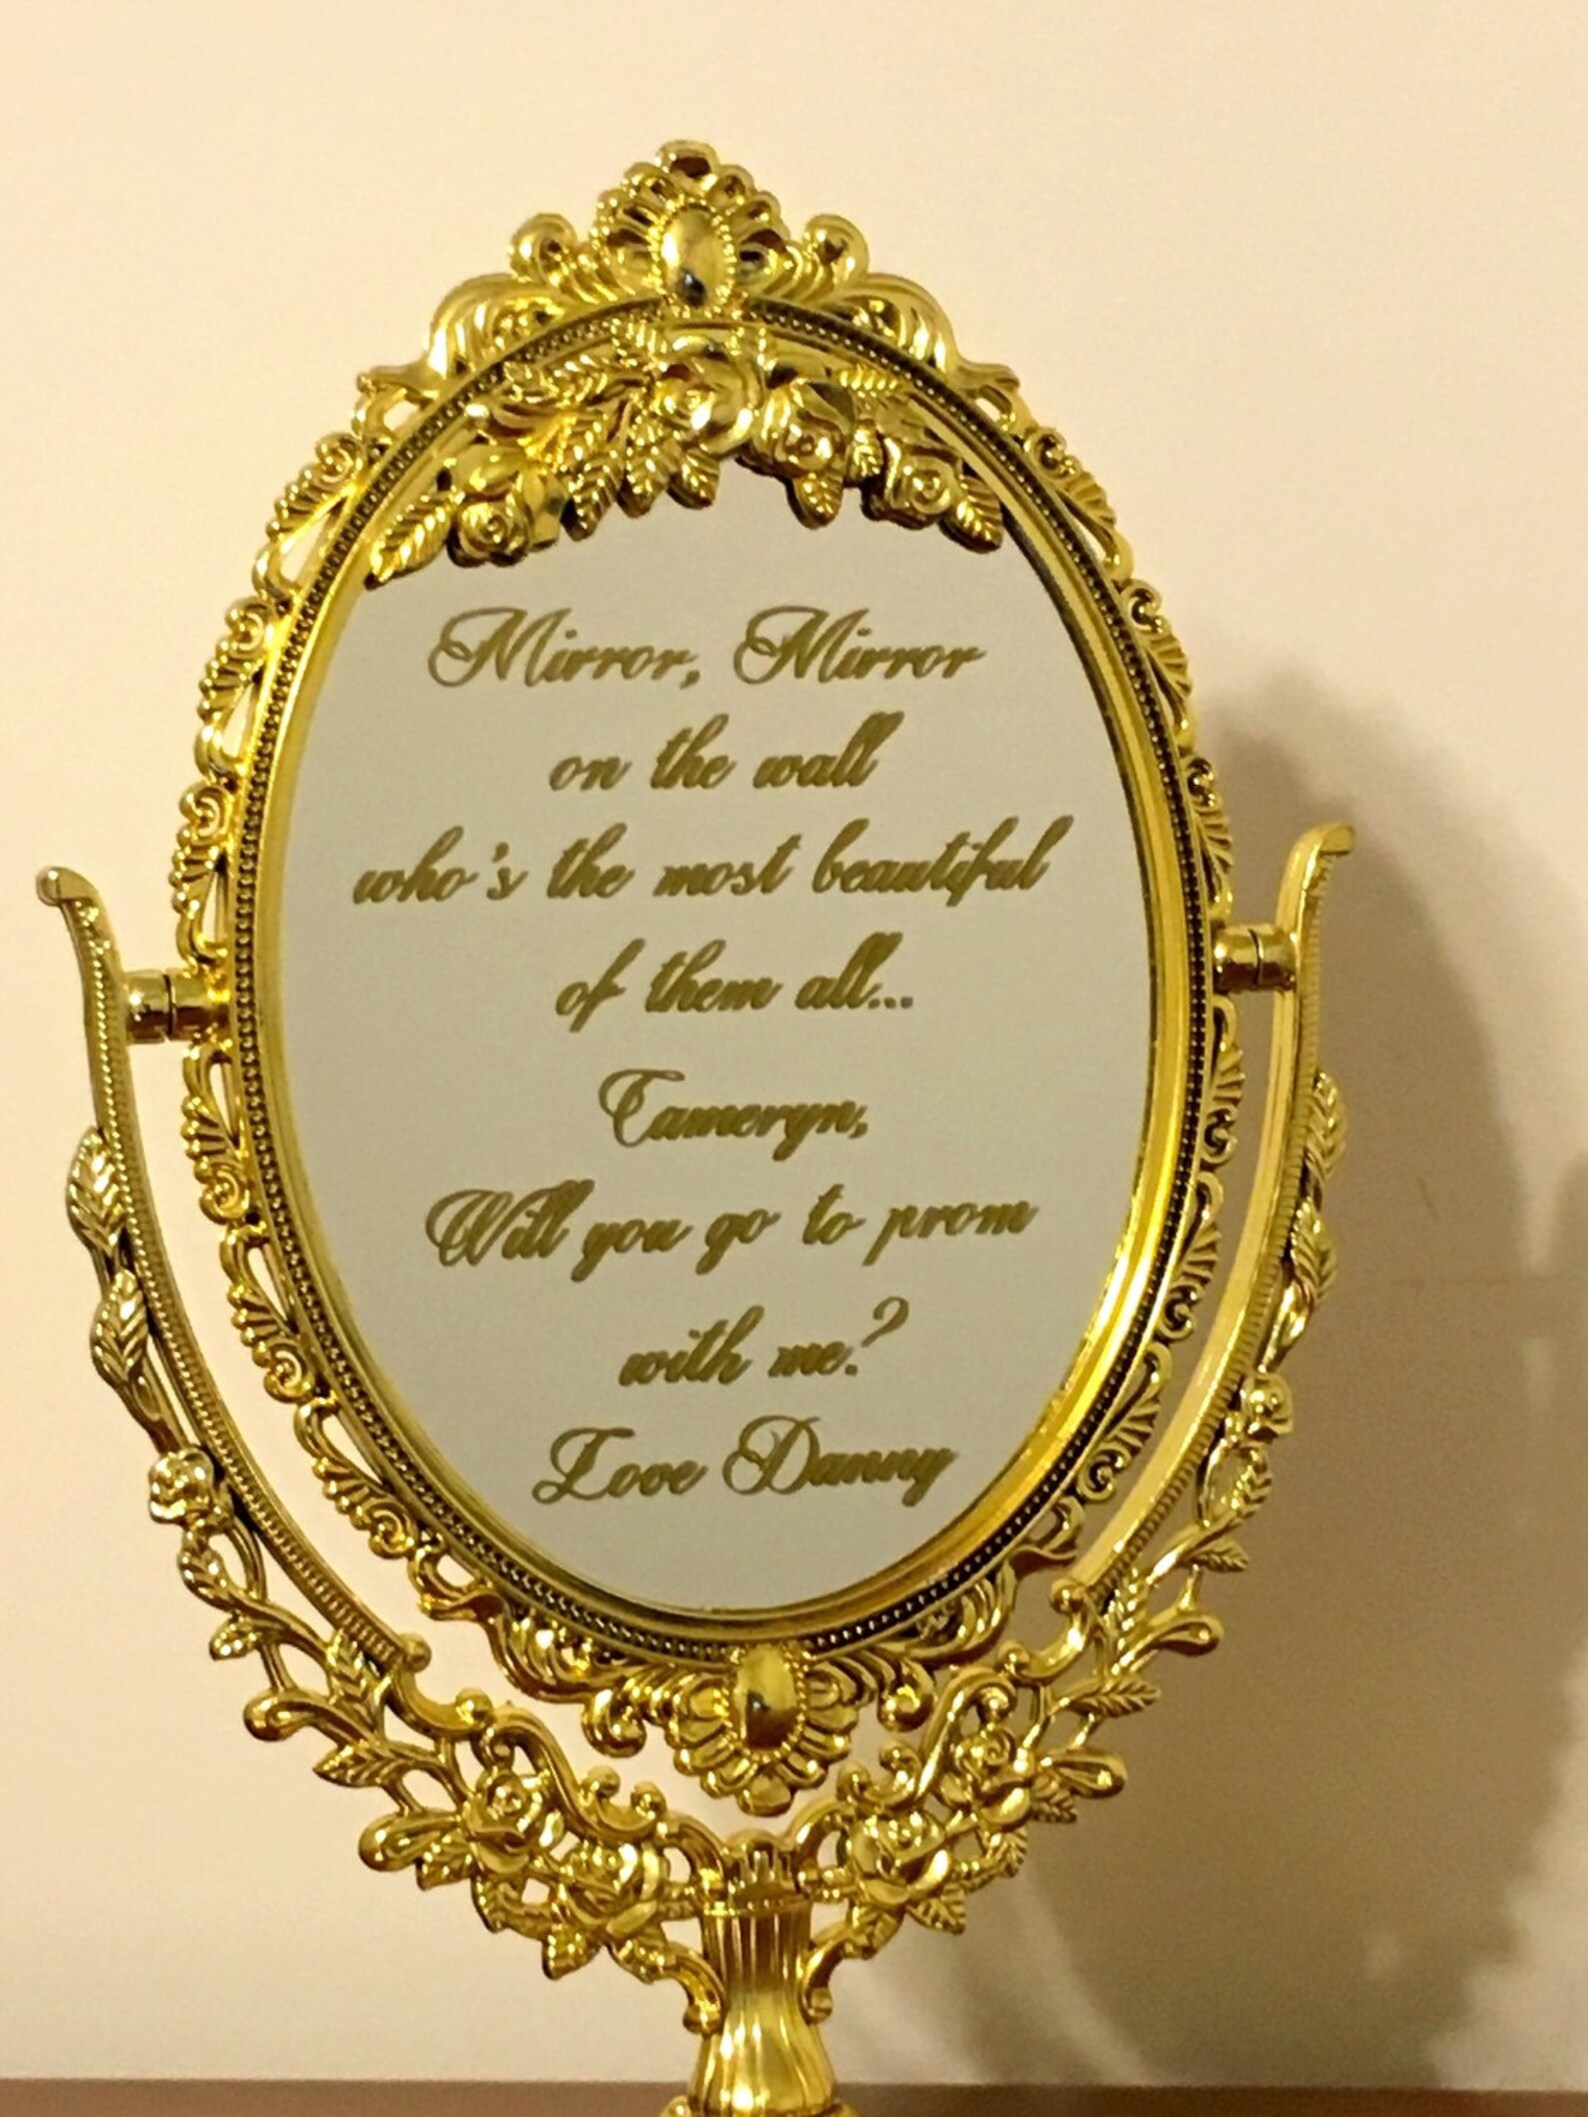 Mirror, Mirror
on the wall
who's the most beautiful
of them all...
Tameryn,
Will you go to prom
with me?
Love Danny